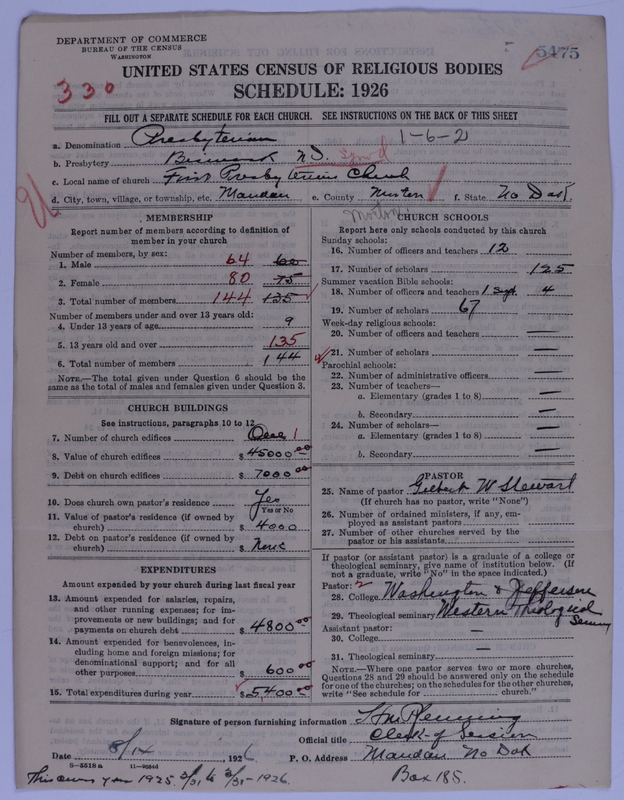 DEPARTMENT OF COMMERCE
BUREAU OF THE CENSUS
WASHINGTON
5475
UNITED STATES CENSUS OF RELIGIOUS BODIES
330
SCHEDULE: 1926
FILL OUT A SEPARATE SCHEDULE FOR EACH CHURCH. SEE INSTRUCTIONS ON THE BACK OF THIS SHEET
1-6-2
a. Denomination Presbyterian
b. Presbytery Bismarck ND. Synod
c. Local name of church First Presbyterian Church
d. City, town, village, or township, etc. Mandan e. County Morton f. State No Dak.
Morton
MEMBERSHIP
Report number of members according to definition of member in your church
Number of members, by sex:
1. Male 64 60
2. Female 80 75
3. Total number of members 144 135
Number of members under and over 13 years old:
4. Under 13 years of age 9
5. 13 years old and over 135
6. Total number of members 144
NOTE.—The total given under Question 6 should be the same as the total of males and females given under Question 3.
CHURCH BUILDINGS
See instructions, paragraphs 10 to 12
7. Number of church edifices One 1
8. Value of church edifices $45000 00
9. Debt on church edifices $7000 00
10. Does church own pastor's residence Yes
Yes or No
11. Value of pastor's residence (if owned by church) $4000
12. Debt on pastor's residence (if owned by church) $None
EXPENDITURES
Amount expended by your church during last fiscal year
13. Amount expended for salaries, repairs, and other running expenses; for improvements or new buildings; and for payments on church debt $4800 00
14. Amount expended for benevolences, including home and foreign missions; for denominational support; and for all other purposes $600 00
15. Total expenditures during year $5,400 00
CHURCH SCHOOLS
Report here only schools conducted by this church
Sunday schools:
16. Number of officers and teachers 12
17. Number of scholars 125
Summer vacation Bible schools:
18. Number of officers and teachers 1 Supt. 4
19. Number of scholars 67
Week-day religious schools:
20. Number of officers and teachers —
21. Number of scholars —
Parochial schools:
22. Number of administrative officers —
23. Number of teachers—
a. Elementary (grades 1 to 8) —
b. Secondary —
24. Number of scholars—
a. Elementary (grades 1 to 8) —
b. Secondary —
PASTOR
25. Name of pastor Gilbert W Stewart
(If church has no pastor, write "None")
26. Number of ordained ministers, if any, employed as assistant pastors
27. Number of other churches served by the pastor or his assistants
If pastor (or assistant pastor) is a graduate of a college or theological seminary, give name of institution below. (If not a graduate, write "No" in the space indicated.)
Pastor: 2
28. College Washington & Jefferson
29. Theological seminary Western Theological Seminary
Assistant pastor:
30. College —
31. Theological seminary —
NOTE.—Where one pastor serves two or more churches, Questions 28 and 29 should be answered only on the schedule for one of the churches; on the schedules for the other churches, write "See schedule for church."
Signature of person furnishing information
Official title Clerk of Session
Date 8/14, 1926 P. O. Address Mandan No Dak
8—5518 a 11—9584d
This covers year 1925 3/31 to 3/31-1926.
Box 185.